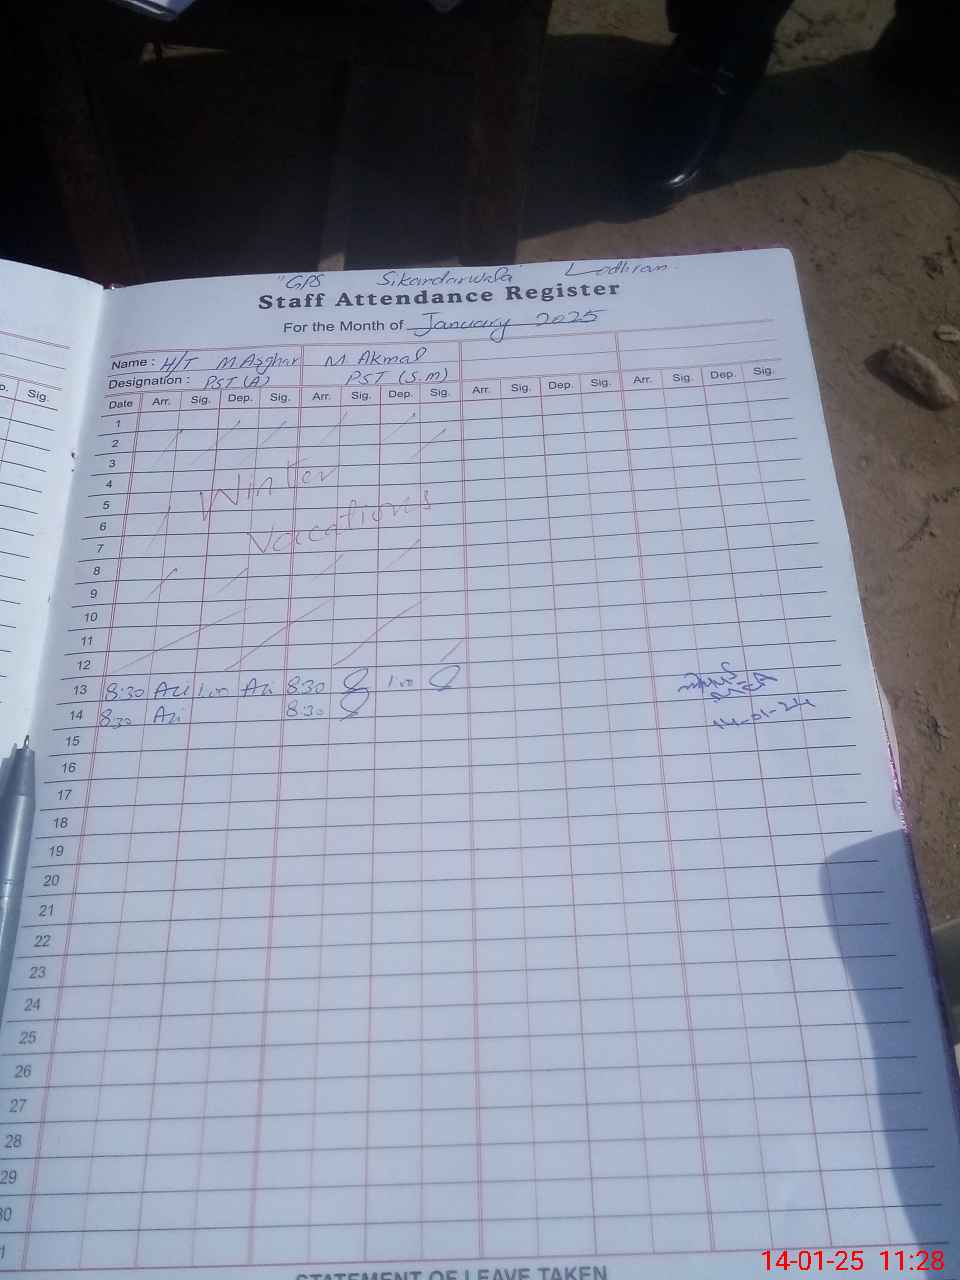 "GPS Sikandarwala" Lodhran.
Staff Attendance Register
For the Month of January 2025
Name: H/T M.Asghar M. Akmal
Designation: PST (A) PST (S.M)
Sig.
Date Arr. Sig. Dep. Sig. Arr. Sig. Dep. Sig. Arr. Sig. Dep. Sig. Arr. Sig. Dep. Sig.
1
2
3
4
Winter
5
6
Vacations
7
8
9
10
11
12
13 8:30 1.00 8:30 1.00
14 8:30 8:30
14-01-24
15
16
17
18
19
20
21
22
23
24
25
26
27
28
29
30
STATEMENT OF LEAVE TAKEN
14-01-25 11:28